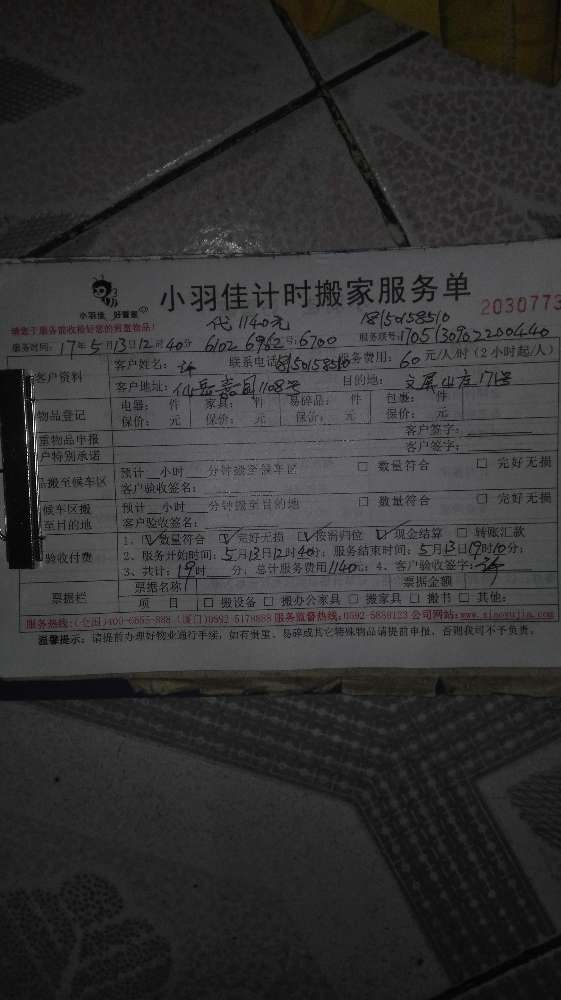 小羽佳 好管家
小羽佳计时搬家服务单
2030773
代1140元 18150158510
请您于服务前收检好您的贵重物品!
服务时间: 17年5月13日12时40分 6102 6962号: 6700 服务联号: 1705130902200440
客户资料 客户姓名: 许 联系电话: 18150158510 服务费用: 60元/人/时 (2小时起/人)
客户地址: 仙岳嘉园1108号 目的地: 文屏山庄171号
物品登记 电器: 件 家具: 件 易碎品: 件 包裹: 件
保价: 元 保价: 元 保价: 元 保价: 元
重物品申报 客户签字:
户特别承诺 客户签字:
品搬至候车区 预计 小时 分钟搬至候车区 □ 数量符合 □ 完好无损
客户验收签名:
候车区搬至目的地 预计 小时 分钟搬至目的地 □ 数量符合 □ 完好无损
客户验收签名:
验收付费 1、☑数量符合 ☑完好无损 ☑按需归位 ☑现金结算 □ 转账汇款
2、服务开始时间: 5月13日12时40分; 服务结束时间: 5月13日19时10分;
3、共计: 19时 分, 总计服务费用1140元; 4、客户验收签字: 许
票据栏 票据名称 票据金额
项 目 □ 搬设备 □ 搬办公家具 □ 搬家具 □ 搬书 □ 其他:
服务热线: (全国)400-6865-888 (厦门)0592-5178888 服务监督热线: 0592-5880123 公司网站: www.xiaoyujia.com
温馨提示: 请提前办理好物业通行手续, 如有贵重、易碎或其它特殊物品请提前申报, 否则我司不予负责。